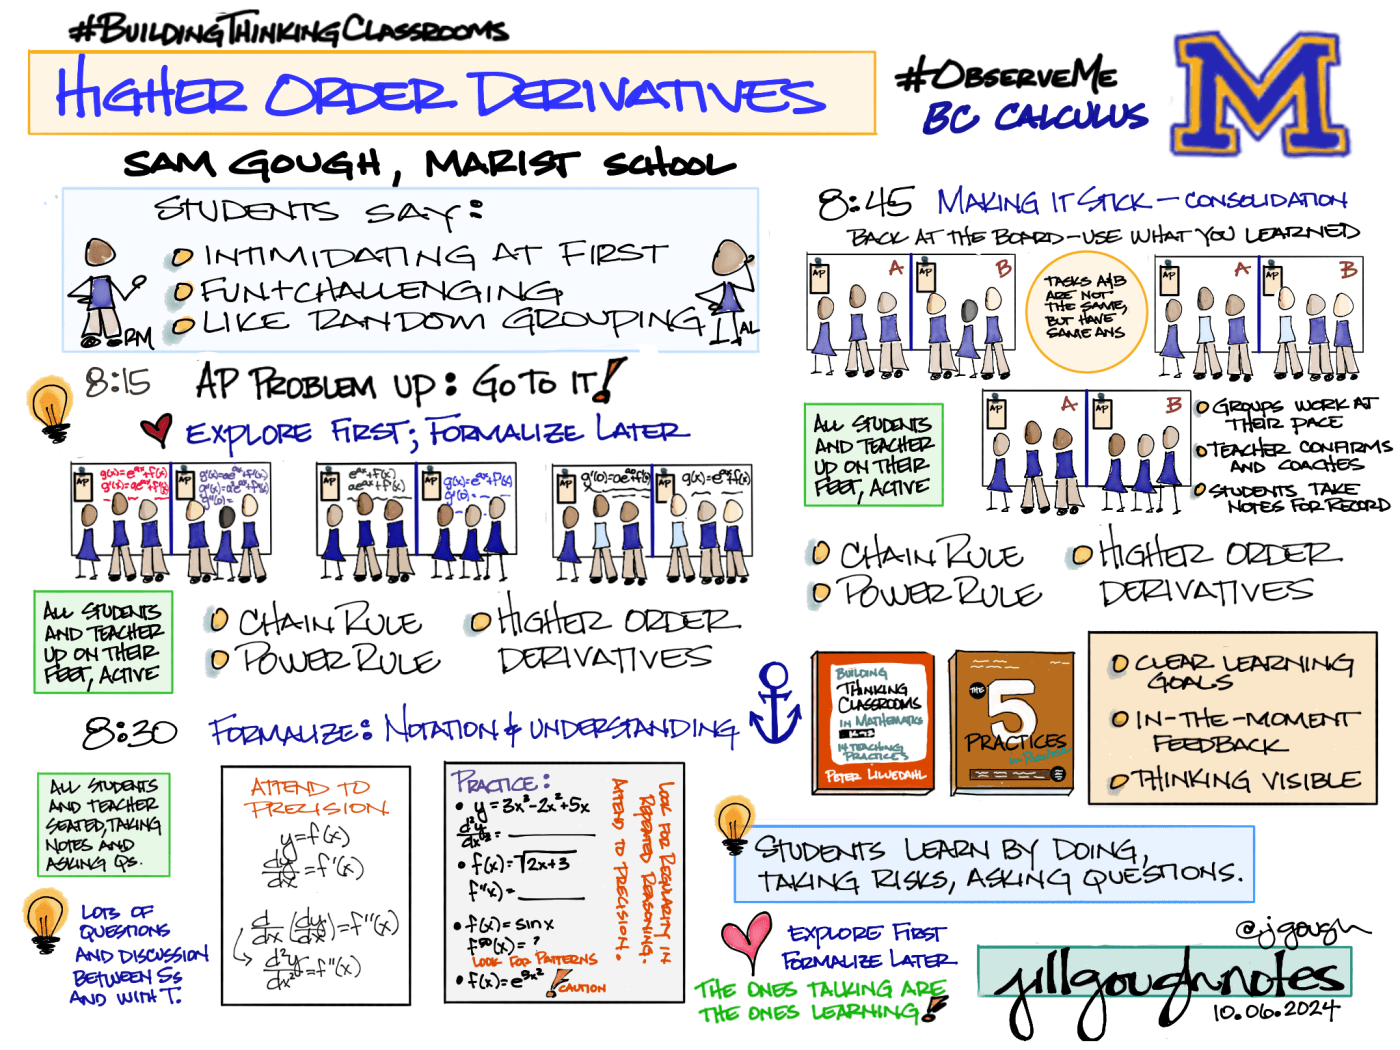 #BuildingThinkingClassrooms
Higher Order Derivatives
Sam Gough, Marist School
#ObserveMe
BC Calculus
M
Students say:
Intimidating at first
Fun + challenging
Like random grouping
RM
AL
8:15 AP Problem up: Go to it!
Explore first; formalize later
AP
g(x)=e^ax+f(x)
g'(x)=ae^ax+f'(x)
AP
AP
e^ax+f(x)
ae^ax+f'(x)
AP
g(x)=e^ax+f(x)
AP
AP
g(x)=e^ax+f(x)
All students
and teacher
up on their
feet, active
Chain Rule
Power Rule
Higher Order
Derivatives
8:30 Formalize: Notation & understanding
All students
and teacher
seated, taking
notes and
asking Qs.
Lots of
questions
and discussion
between Ss
and with T.
Attend to
precision
y=f(x)
dy/dx=f'(x)
d/dx(dy/dx)=f''(x)
d²y/dx²=f''(x)
Practice:
y=3x³-2x²+5x
=
f(x)=√2x+3
f''(x)=
f(x)=sin x
f⁵⁰(x)=?
Look for patterns
Caution
Look for regularity in
repeated reasoning.
Attend to precision.
8:45 Making it stick – consolidation
Back at the board – use what you learned
AP
A
AP
B
Tasks A&B
are not
the same,
but have
same ans
AP
A
AP
B
All students
and teacher
up on their
feet, active
AP
A
AP
B
Groups work at
their pace
Teacher confirms
and coaches
Students take
notes for record
Chain Rule
Power Rule
Higher Order
Derivatives
Building
Thinking
Classrooms
in Mathematics
14 Teaching
Practices
Peter Liljedahl
The
5
Practices
in Practice
Clear learning
goals
In-the-moment
feedback
Thinking visible
Students learn by doing,
taking risks, asking questions.
Explore first
Formalize later
The ones talking are
the ones learning!
@jgough
jillgoughnotes
10.06.2024